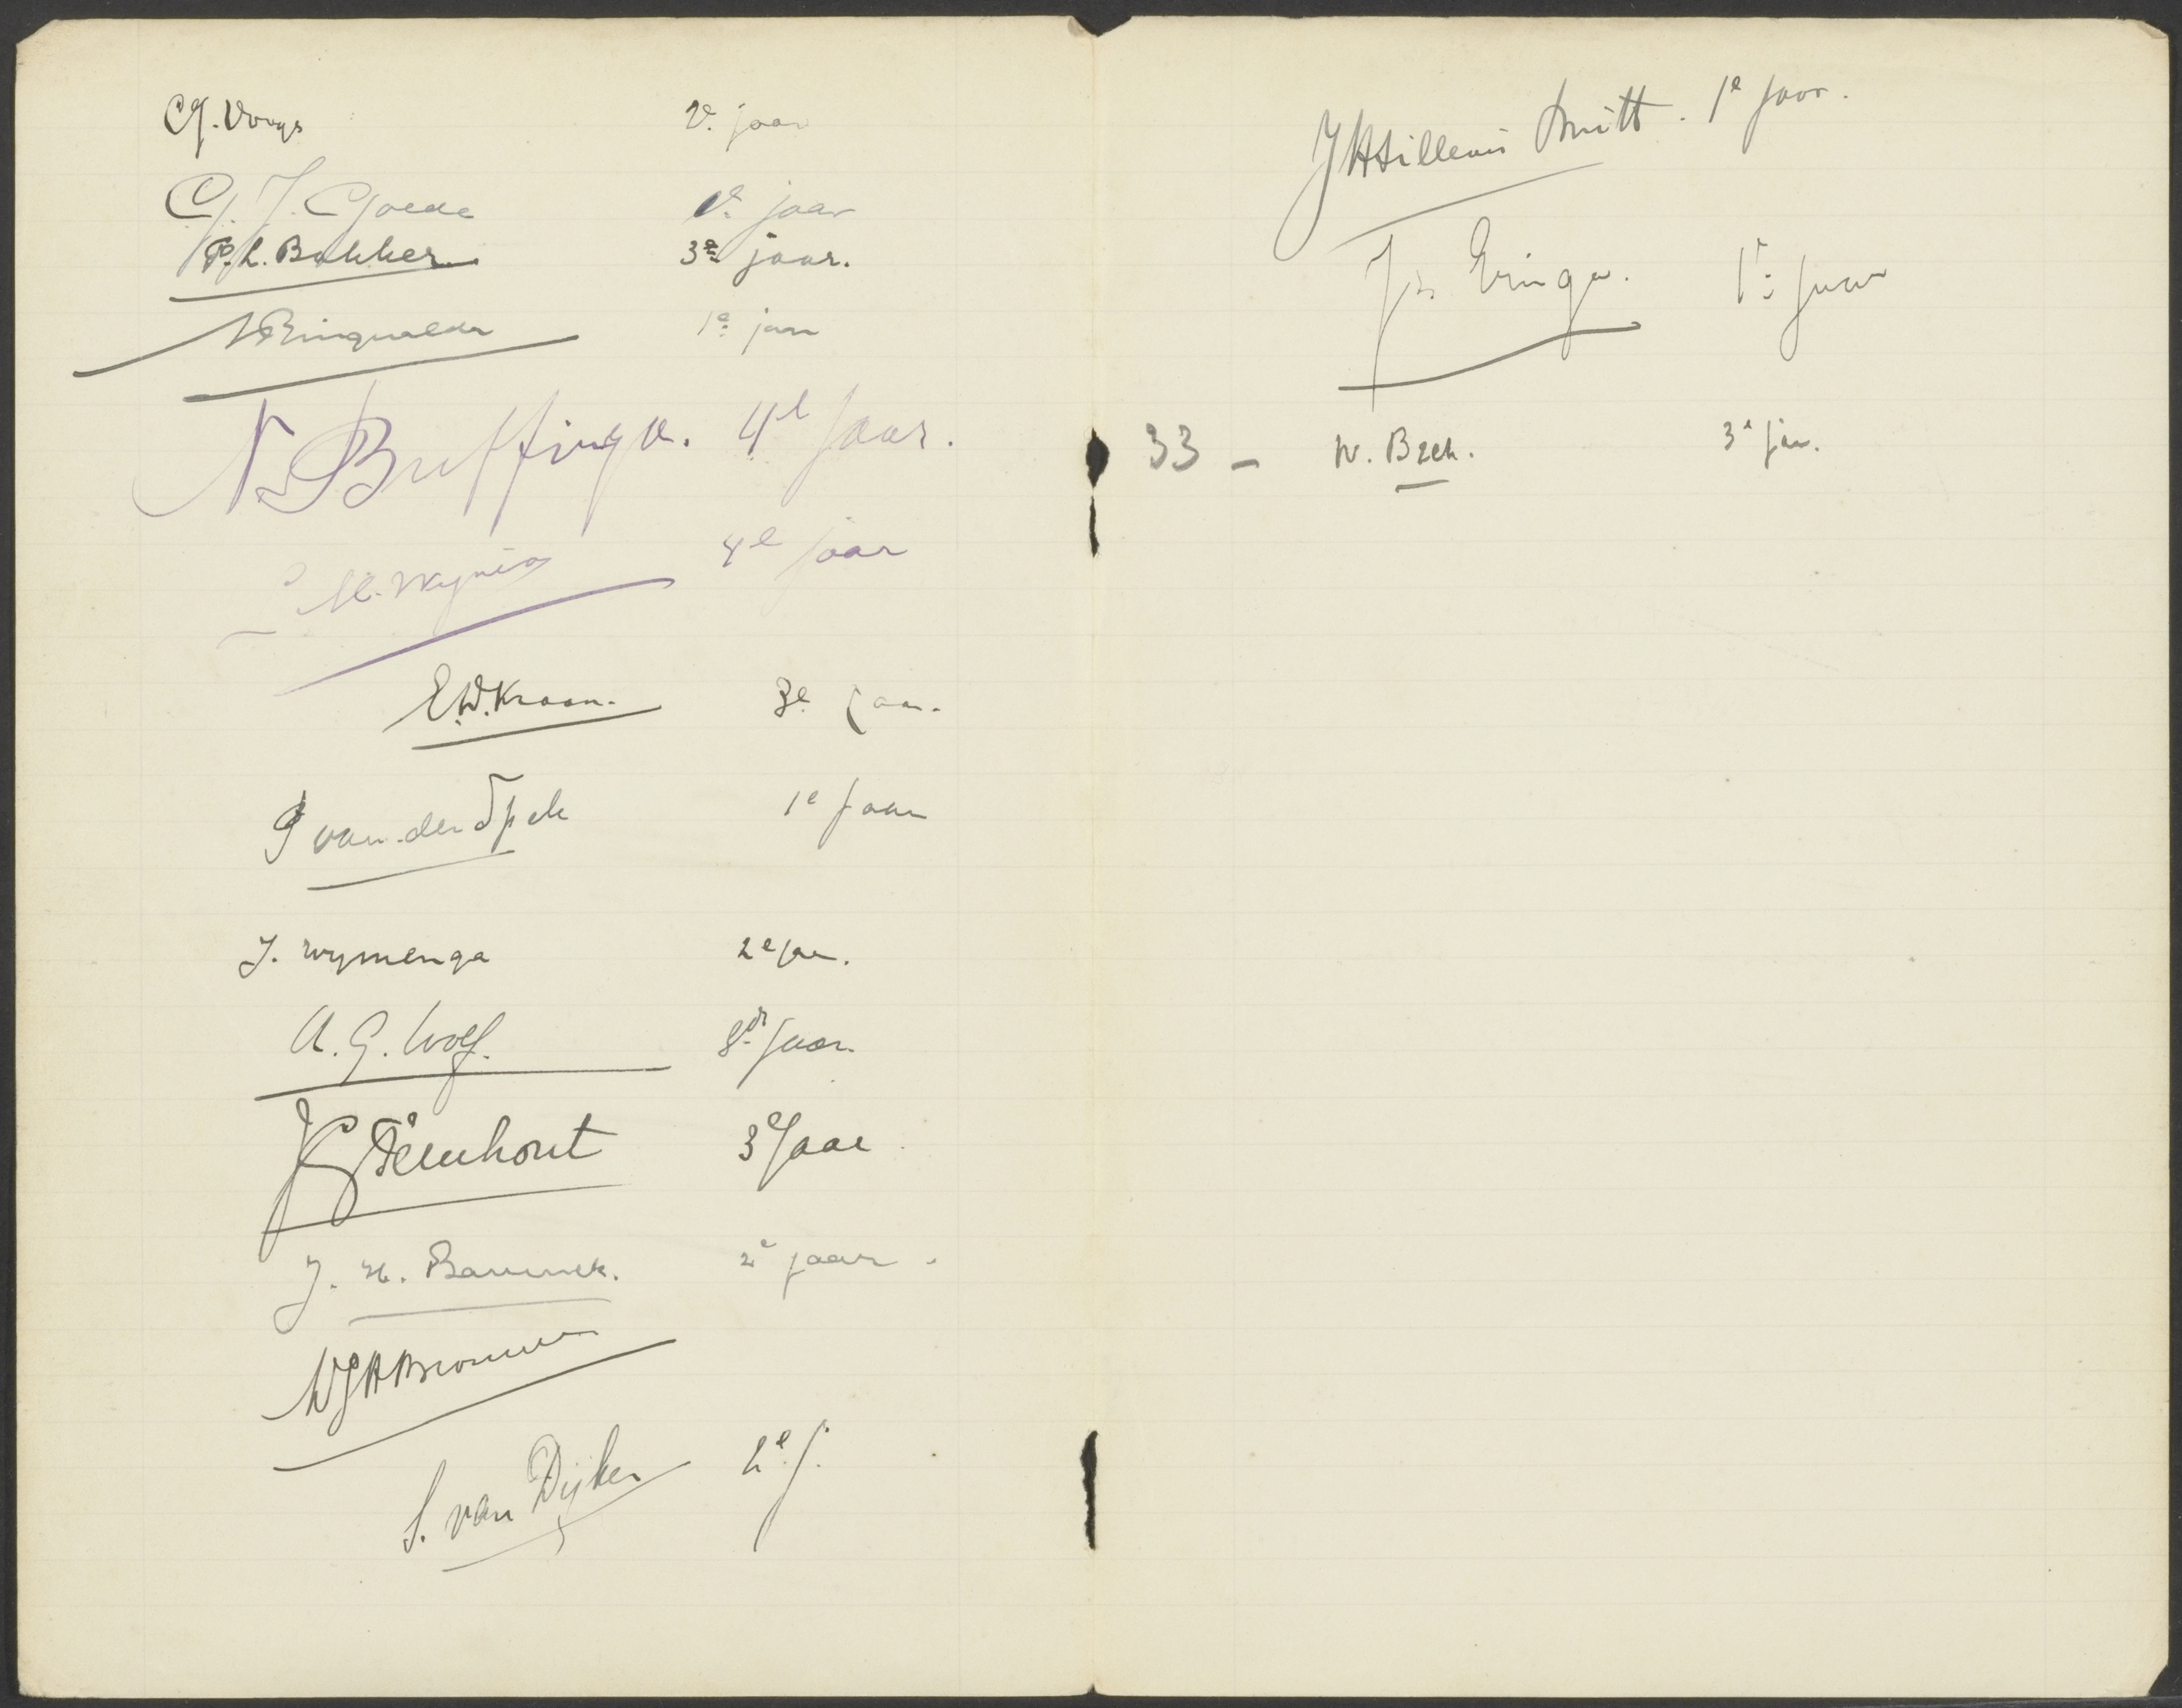 C.J. Vooys 2e jaar
G. J. Goede 1e jaar
P. L. Bakker 3e jaar.
1e jaar
N Buffinga. 4e jaar.
4e jaar
E.W. Kraan. 3e jaar.
van der Spek 1e jaar
J. Wymenga 2e jaar.
A. G. Wolf. jaar.
J Steenhout 3e Jaar
J. H. 2e jaar.
W J H Brouwer
S. van Dijken 2e j.
J H Sillevis Smitt. 1e jaar.
Js. Eringa. 1e jaar
33 - W. Bzek. 3e jaar.